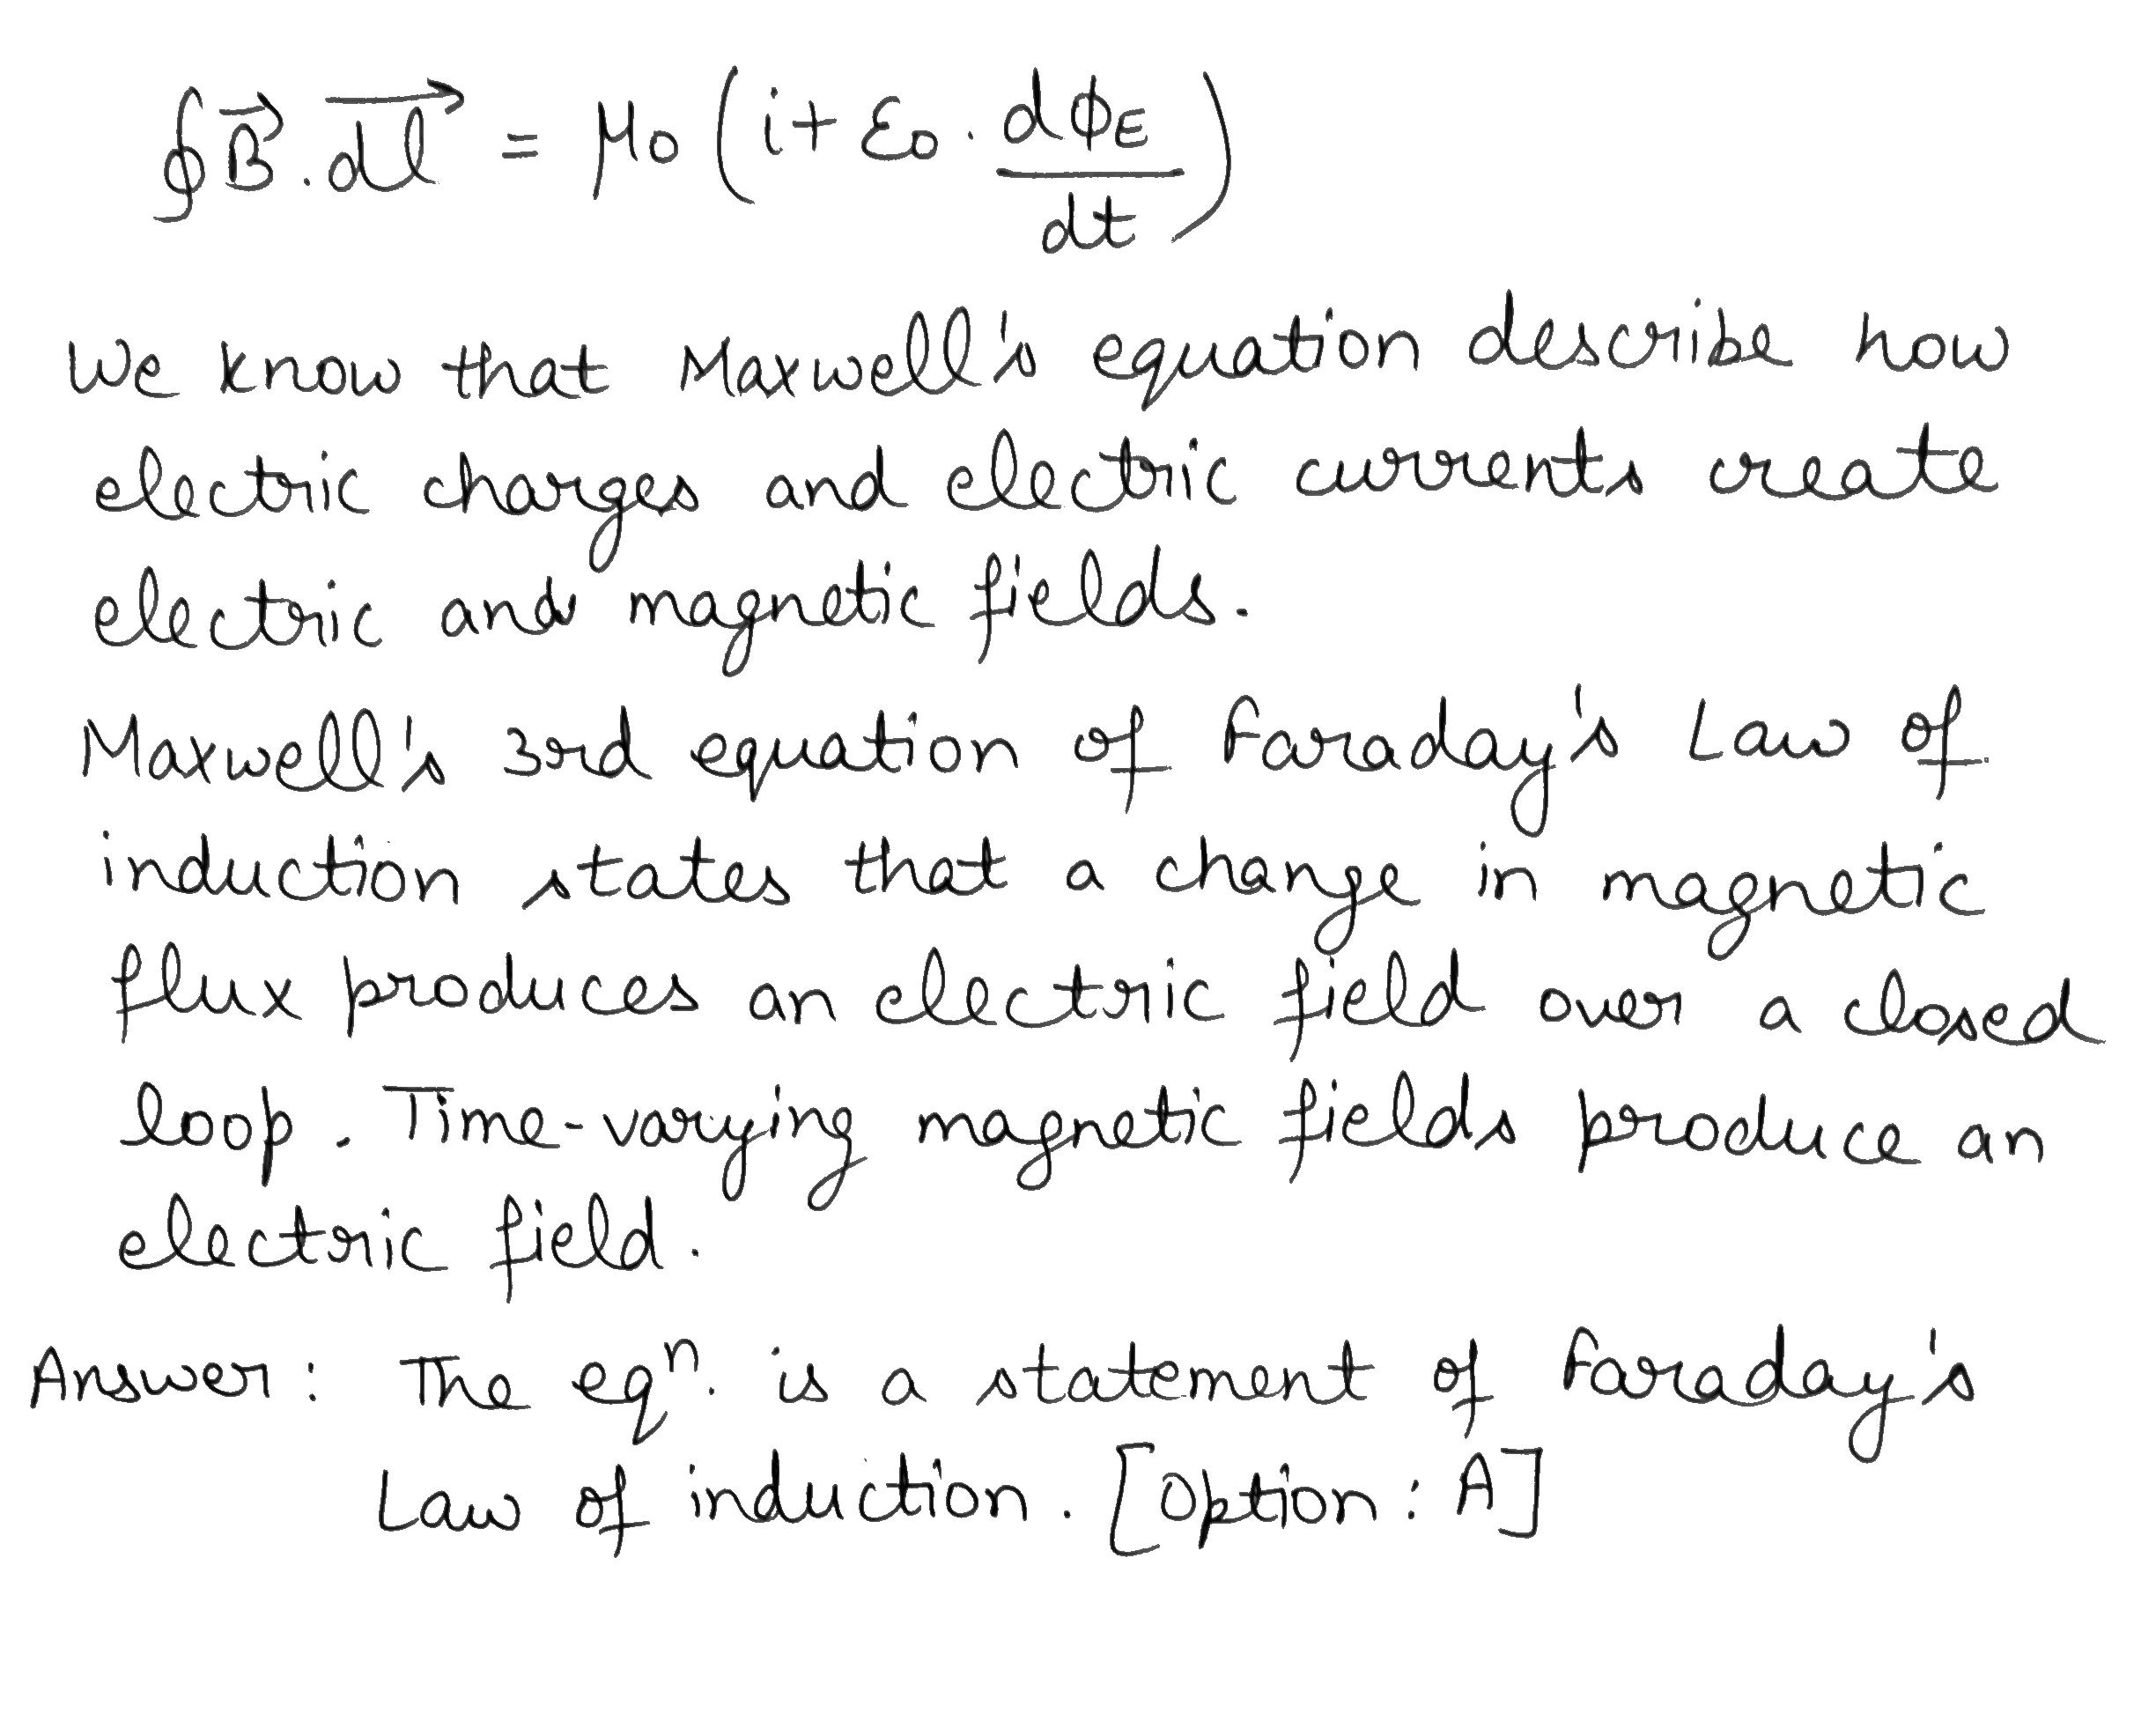 ∮B⃗.dl⃗ = μ0 (i + ε0. dϕE/dt)
We know that Maxwell's equation describe how
electric charges and electric currents create
electric and magnetic fields.
Maxwell's 3rd equation of Faraday's Law of
induction states that a change in magnetic
flux produces an electric field over a closed
loop. Time-varying magnetic fields produce an
electric field.
Answer: The eqⁿ. is a statement of Faraday's
Law of induction. [Option: A]